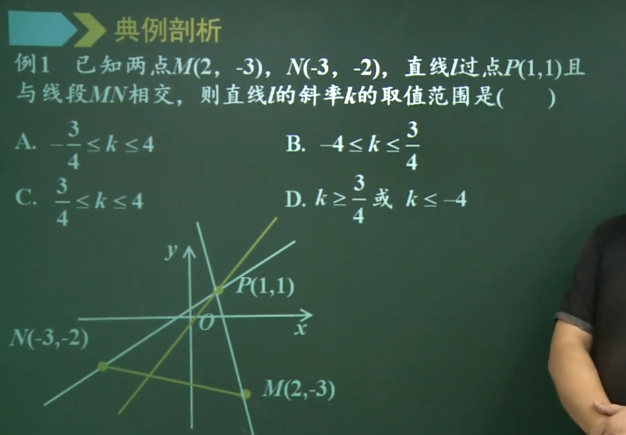 典例剖析
例1 已知两点M(2，-3)，N(-3，-2)，直线l过点P(1,1)且
与线段MN相交，则直线l的斜率k的取值范围是(  )
A. -3/4≤k≤4 B. -4≤k≤3/4
C. 3/4≤k≤4 D. k≥3/4或 k≤-4
y
P(1,1)
O
x
N(-3,-2)
M(2,-3)